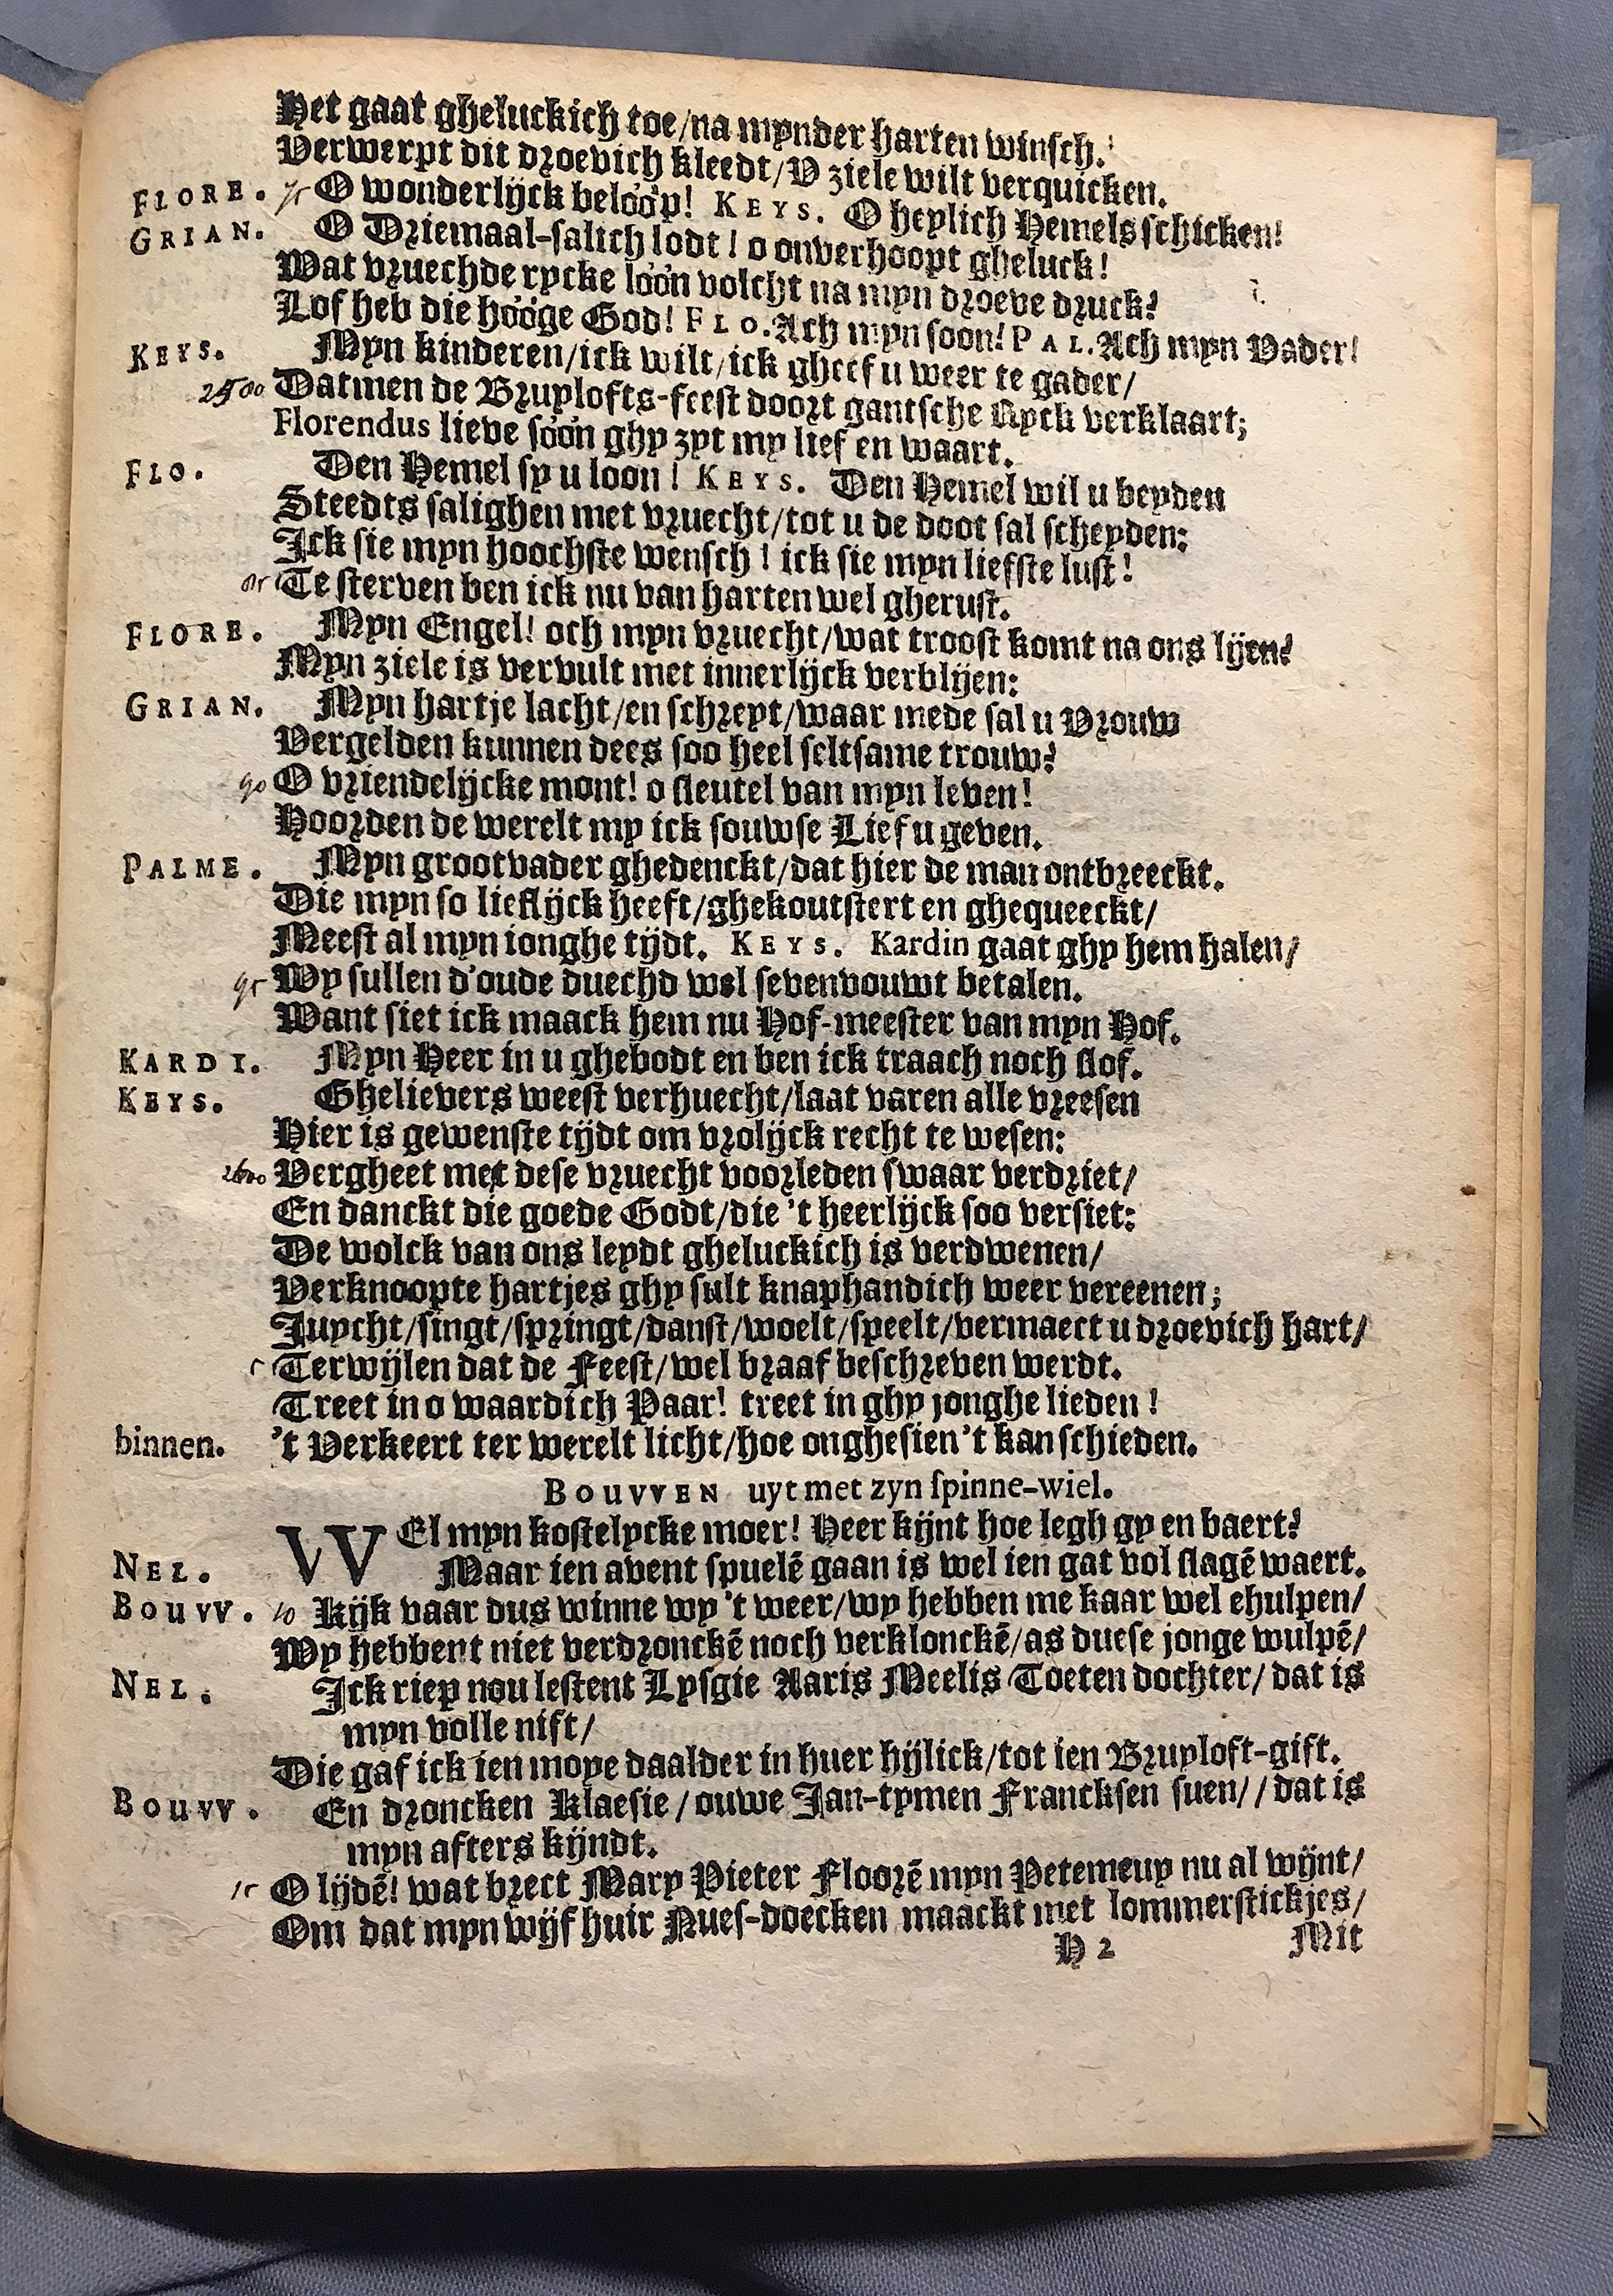 Het gaat gheluckich toe/na mynder harten winsch.
Verwerpt dit droevich kleedt/V ziele wilt verquicken.
FLORE. 75 O wonderlijck belóóp! KEYS. O heylich Hemels schicken!
GRIAN. O Driemaal-salich lodt! o onverhoopt gheluck!
Wat vruechderycke lóón volcht na myn droeve druck?
Lof heb die hóóge God! FLO. Ach myn soon! PAL. Ach myn Vader!
KEYS. Myn kinderen/ick wilt/ick gheef u weer te gader/
2580 Datmen de Bruylofts-feest doort gantsche Ryck verklaart;
Florendus lieve sóón ghy zyt my lief en waart.
FLO. Den Hemel sy u loon! KEYS. Den Hemel wil u beyden
Steedts salighen met vruecht/tot u de doot sal scheyden:
Ick sie myn hoochste wensch! ick sie myn liefste lust!
85 Te sterven ben ick nu van harten wel gherust.
FLORE. Myn Engel! och myn vruecht/wat troost komt na ons lijen?
Myn ziele is vervult met innerlijck verblijen:
GRIAN. Myn hartje lacht/en schreyt/waar mede sal u Vrouw
Vergelden kunnen dees soo heel seltsame trouw?
90 O vriendelijcke mont! o sleutel van myn leven!
Hoorden de werelt my ick souwse Lief u geven.
PALME. Myn grootvader ghedenckt/dat hier de man ontbreeckt.
Die myn so lieflijck heeft/ghekoutstert en ghequeeckt/
Meest al myn ionghe tijdt. KEYS. Kardin gaat ghy hem halen/
95 Wy sullen d'oude duechd wel sevenvouwt betalen.
Want siet ick maack hem nu Hof-meester van myn Hof.
KARDI. Myn Heer in u ghebodt en ben ick traach noch slof.
KEYS. Ghelievers weest verhuecht/laat varen alle vreesen
Hier is gewenste tijdt om vrolijck recht te wesen:
2600 Vergheet met dese vruecht voorleden swaar verdriet/
En danckt die goede Godt/die 't heerlijck soo versiet:
De wolck van ons leydt gheluckich is verdwenen/
Verknoopte hartjes ghy sult knaphandich weer vereenen;
Juycht/singt/springt/danst/woelt/speelt/vermaect u droevich hart/
5 Terwijlen dat de Feest/wel braaf beschreven werdt.
Treet in o waardich Paar! treet in ghy jonghe lieden!
binnen. 't Verkeert ter werelt licht/hoe onghesien 't kan schieden.
BOUVVEN uyt met zyn spinne-wiel.
WEl myn kostelycke moer! Heer kijnt hoe legh gy en baert?
NEL. Maar ien avent spuelē gaan is wel ien gat vol slagē waert.
BOUVV. 10 Kijk vaar dus winne wy 't weer/wy hebben me kaar wel ehulpen/
Wy hebbent niet verdronckē noch verklonckē/as duese jonge wulpē/
NEL. Ick riep nou lestent Lysgie Aaris Meelis Toeten dochter/dat is
myn volle nift/
Die gaf ick ien moye daalder in huer hijlick/tot ien Bruyloft-gift.
BOUVV. En droncken Klaesie/ouwe Jan-tymen Francksen suen//dat is
myn afters kijndt.
15 O lijdē! wat brect Mary Pieter Floorē myn Petemeuy nu al wijnt/
Om dat myn wijf huir Nues-doecken maackt met lommerstickjes/
H 2 Mit